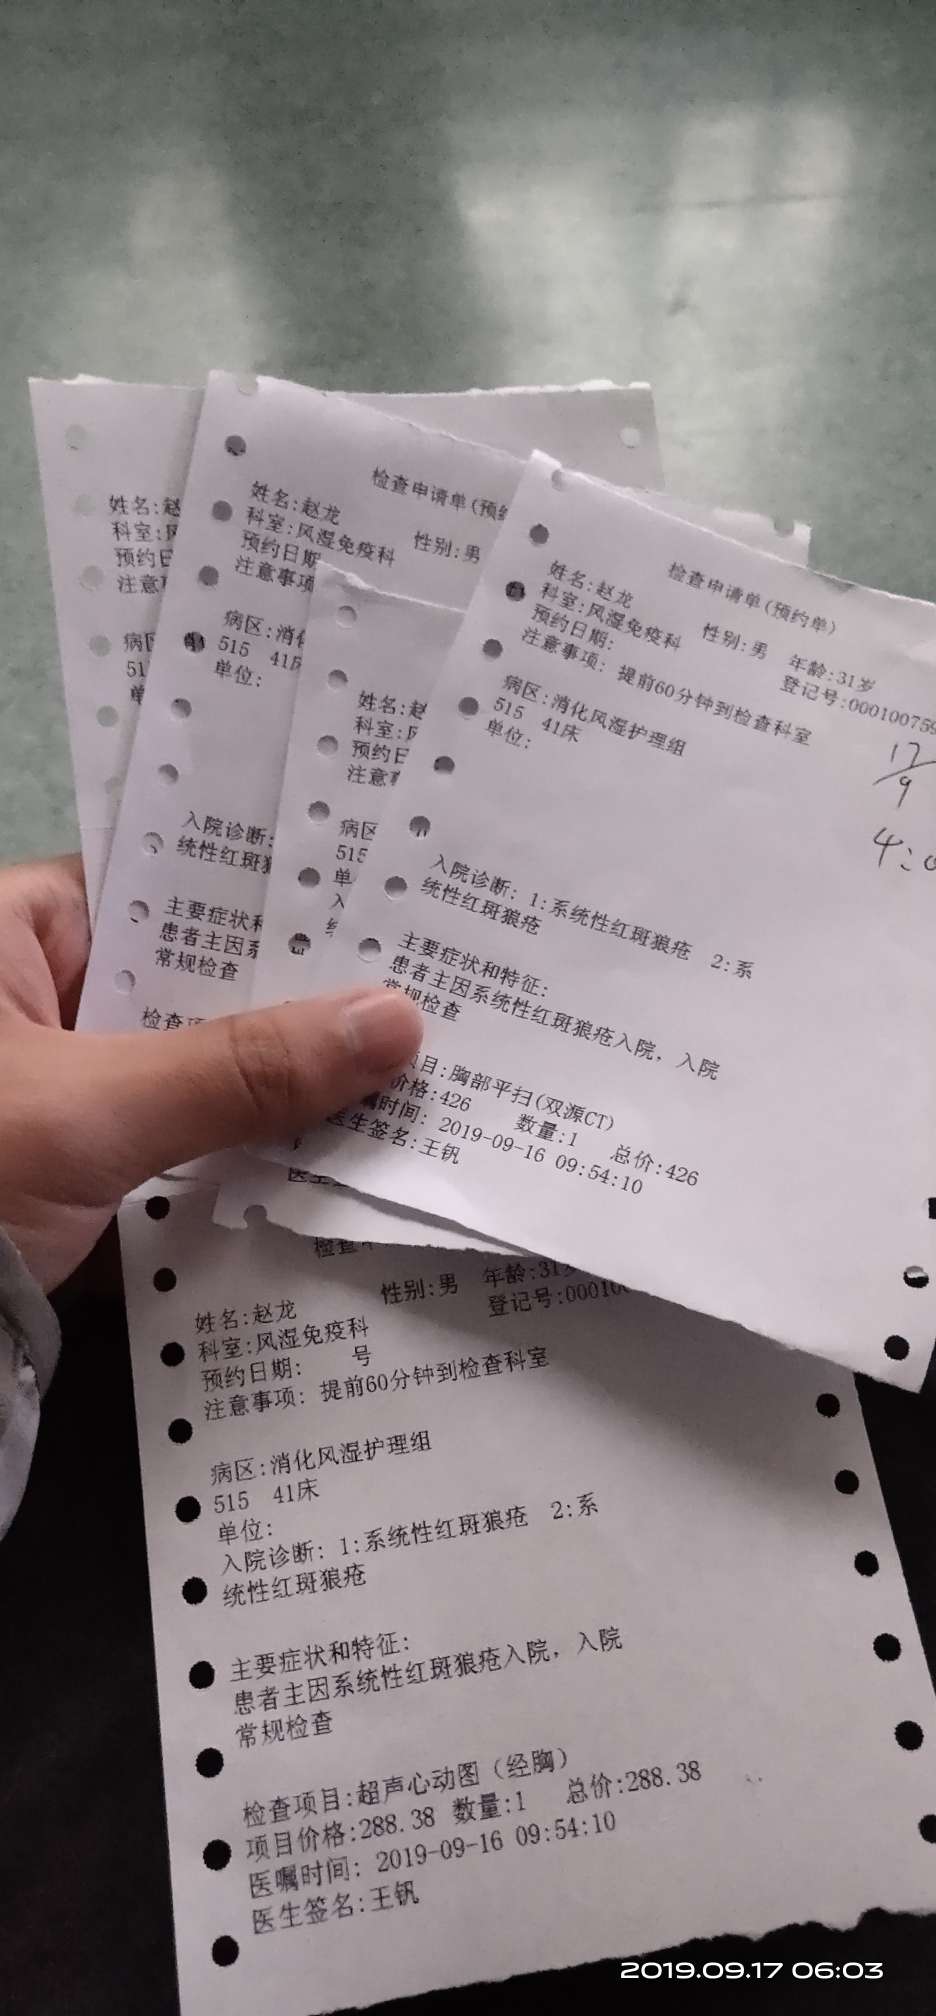 姓名:赵
科室:风
预约日
注意事
病区
51
单
检查申请单(预约
姓名:赵龙
性别:男
科室:风湿免疫科
预约日期
注意事项
病区:消化
515 41床
单位:
入院诊断:
统性红斑狼
主要症状和
患者主因系
常规检查
检查项
姓名:赵
科室:风
预约日
注意事
病区
515
单
入
统
医生
检查申请单(预约单)
姓名:赵龙
性别:男 年龄:31岁
科室:风湿免疫科
登记号:000100759
预约日期:
注意事项: 提前60分钟到检查科室
病区:消化风湿护理组
515 41床
单位:
17/9
4:0
入院诊断: 1:系统性红斑狼疮 2:系
统性红斑狼疮
主要症状和特征:
患者主因系统性红斑狼疮入院，入院
常规检查
项目:胸部平扫(双源CT)
价格:426 数量:1 总价:426
嘱时间: 2019-09-16 09:54:10
医生签名:王钒
检查申
姓名:赵龙 性别:男 年龄:31岁
科室:风湿免疫科 登记号:00010
预约日期: 号
注意事项: 提前60分钟到检查科室
病区:消化风湿护理组
515 41床
单位:
入院诊断: 1:系统性红斑狼疮 2:系
统性红斑狼疮
主要症状和特征:
患者主因系统性红斑狼疮入院，入院
常规检查
检查项目:超声心动图（经胸）
项目价格:288.38 数量:1 总价:288.38
医嘱时间: 2019-09-16 09:54:10
医生签名:王钒
2019.09.17 06:03